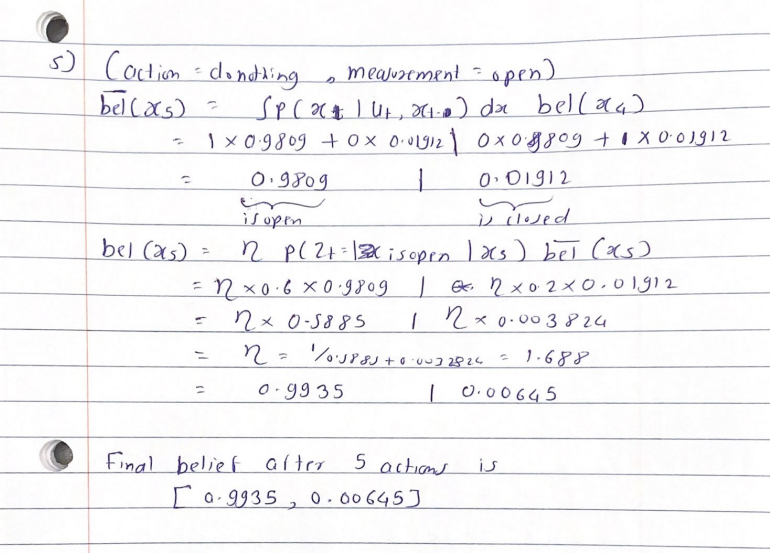 5) (action = donothing, measurement = open)
b̅e̅l̅(x5) = ∫p(xt | Ut, xt-1) dx bel(x4)
= 1 × 0.9809 + 0 × 0.01912 | 0 × 0.9809 + 1 × 0.01912
= 0.9809 | 0.01912
is open is closed
bel(x5) = η p(Zt = isopen | x5) b̅e̅l̅(x5)
= η × 0.6 × 0.9809 | η × 0.2 × 0.01912
= η × 0.5885 | η × 0.003824
= η = 1/0.5885 + 0.0032824 = 1.688
= 0.9935 | 0.00645
Final belief after 5 actions is
[0.9935, 0.00645]